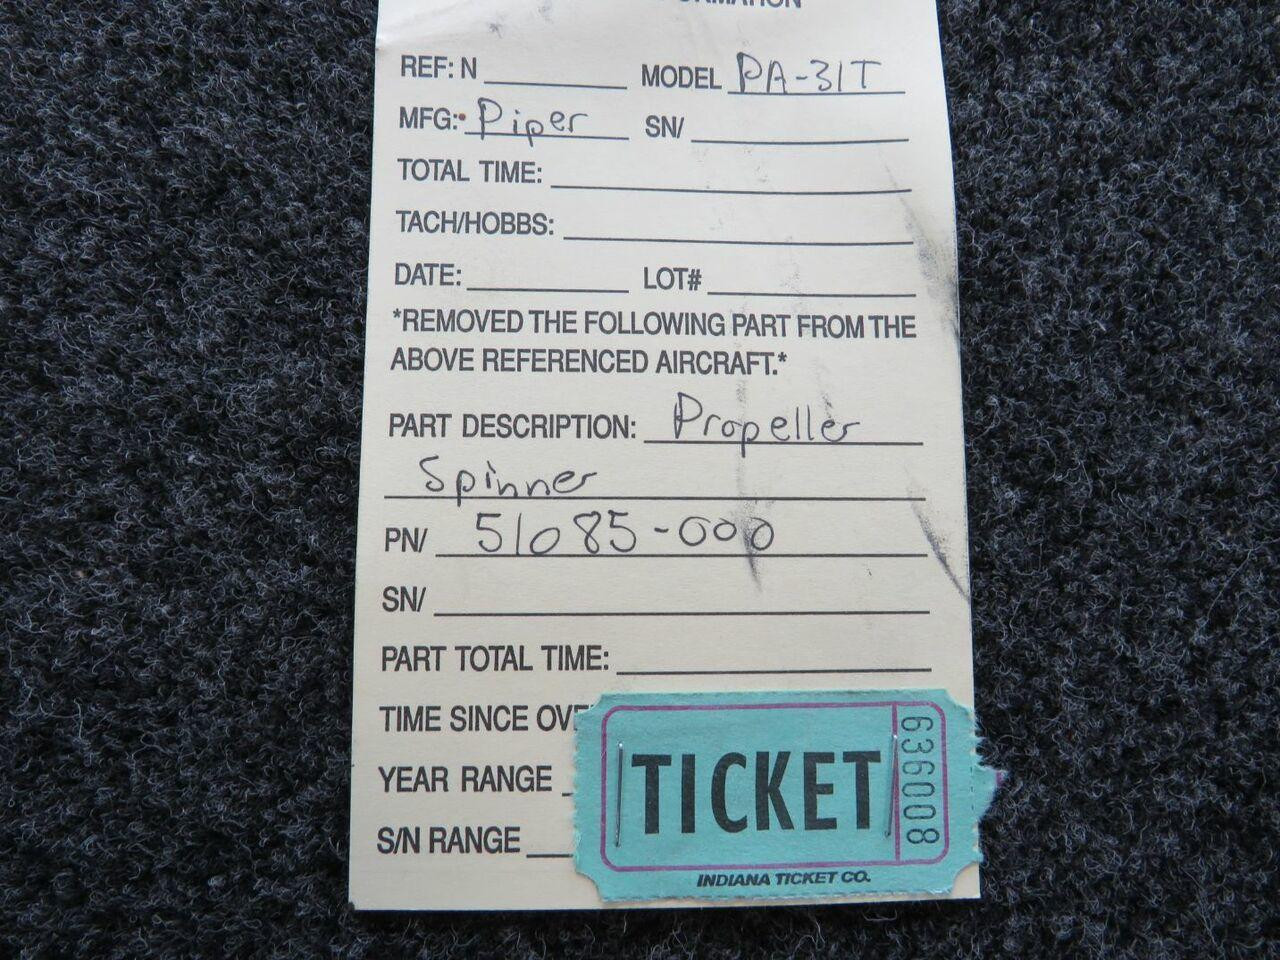 REF: N MODEL PA-31T
MFG: Piper SN/
TOTAL TIME:
TACH/HOBBS:
DATE: LOT#
*REMOVED THE FOLLOWING PART FROM THE
ABOVE REFERENCED AIRCRAFT.*
PART DESCRIPTION: Propeller
Spinner
PN/ 51085-000
SN/
PART TOTAL TIME:
TIME SINCE OVE
YEAR RANGE
S/N RANGE
TICKET
636008
INDIANA TICKET CO.